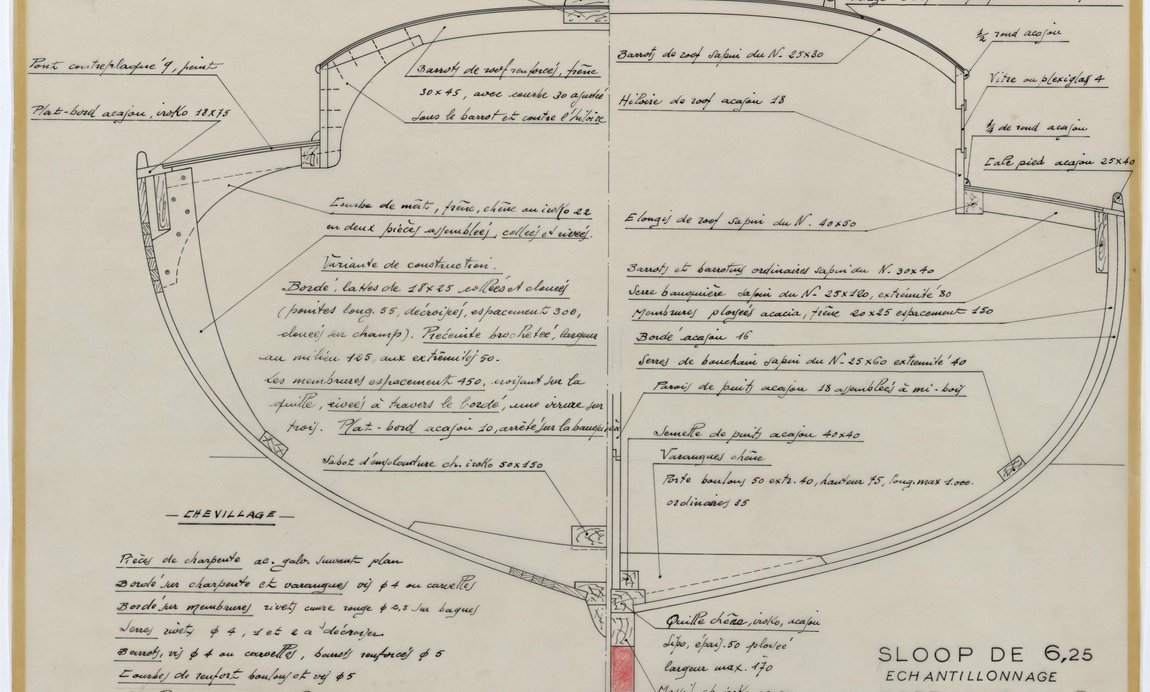 Pont contreplaqué 9, peint
Plat-bord acajou, iroko 18x75
Barrots de roof renforcés, frêne
30x45, avec courbe 30 ajustée
sous le barrot et contre l'hiloire
Courbe de mât, frêne, chêne ou iroko 22
en deux pièces assemblées, collées et rivées.
Variante de construction.
Bordé, lattes de 18x25 collées et clouées
(pointes long. 55, décroisées, espacement 300,
clouées sur champ). Préceinte brochetée, largeur
au milieu 125, aux extrémités 50.
Les membrures espacement 450, croisant sur la
quille, rivées à travers le bordé, une virure sur
trois. Plat-bord acajou 10, arrêté sur la bauquière
Sabot d'emplanture ch. iroko 50x150
— CHEVILLAGE —
Pièces de charpente ac. galv. suivant plan
Bordé sur charpente et varangues vis ϕ 4 ou carvelles
Bordé sur membrures rivets cuivre rouge ϕ 2,5 sur bagues
Serres rivets ϕ 4, 1 et 2 à décroiser
Barrots, vis ϕ 4 ou carvelles, barrots renforcés ϕ 5
Courbes de renfort boulons et vis ϕ 5
Barrots de roof sapin du N. 25x30
Hiloire de roof acajou 18
½ rond acajou
Vitre ou plexiglas 4
¼ de rond acajou
Cale pied acajou 25x40
Elongis de roof sapin du N. 40x60
Barrots et barrotins ordinaires sapin du N. 30x40
Serre bauquière sapin du N. 25x120, extrémité 80
Membrures ployées acacia, frêne 20x25 espacement 150
Bordé acajou 16
Serres de bouchain sapin du N. 25x60 extrémité 40
Parois de puits acajou 18 assemblées à mi-bois
Semelle de puits acajou 40x40
Varangues chêne
Porte boulons 50 extr. 40, hauteur 75, long. max 1.000.
ordinaires 25
Quille chêne, iroko, acajou
Sipo, épais. 50 ployée
largeur max. 170
SLOOP DE 6,25
ECHANTILLONNAGE